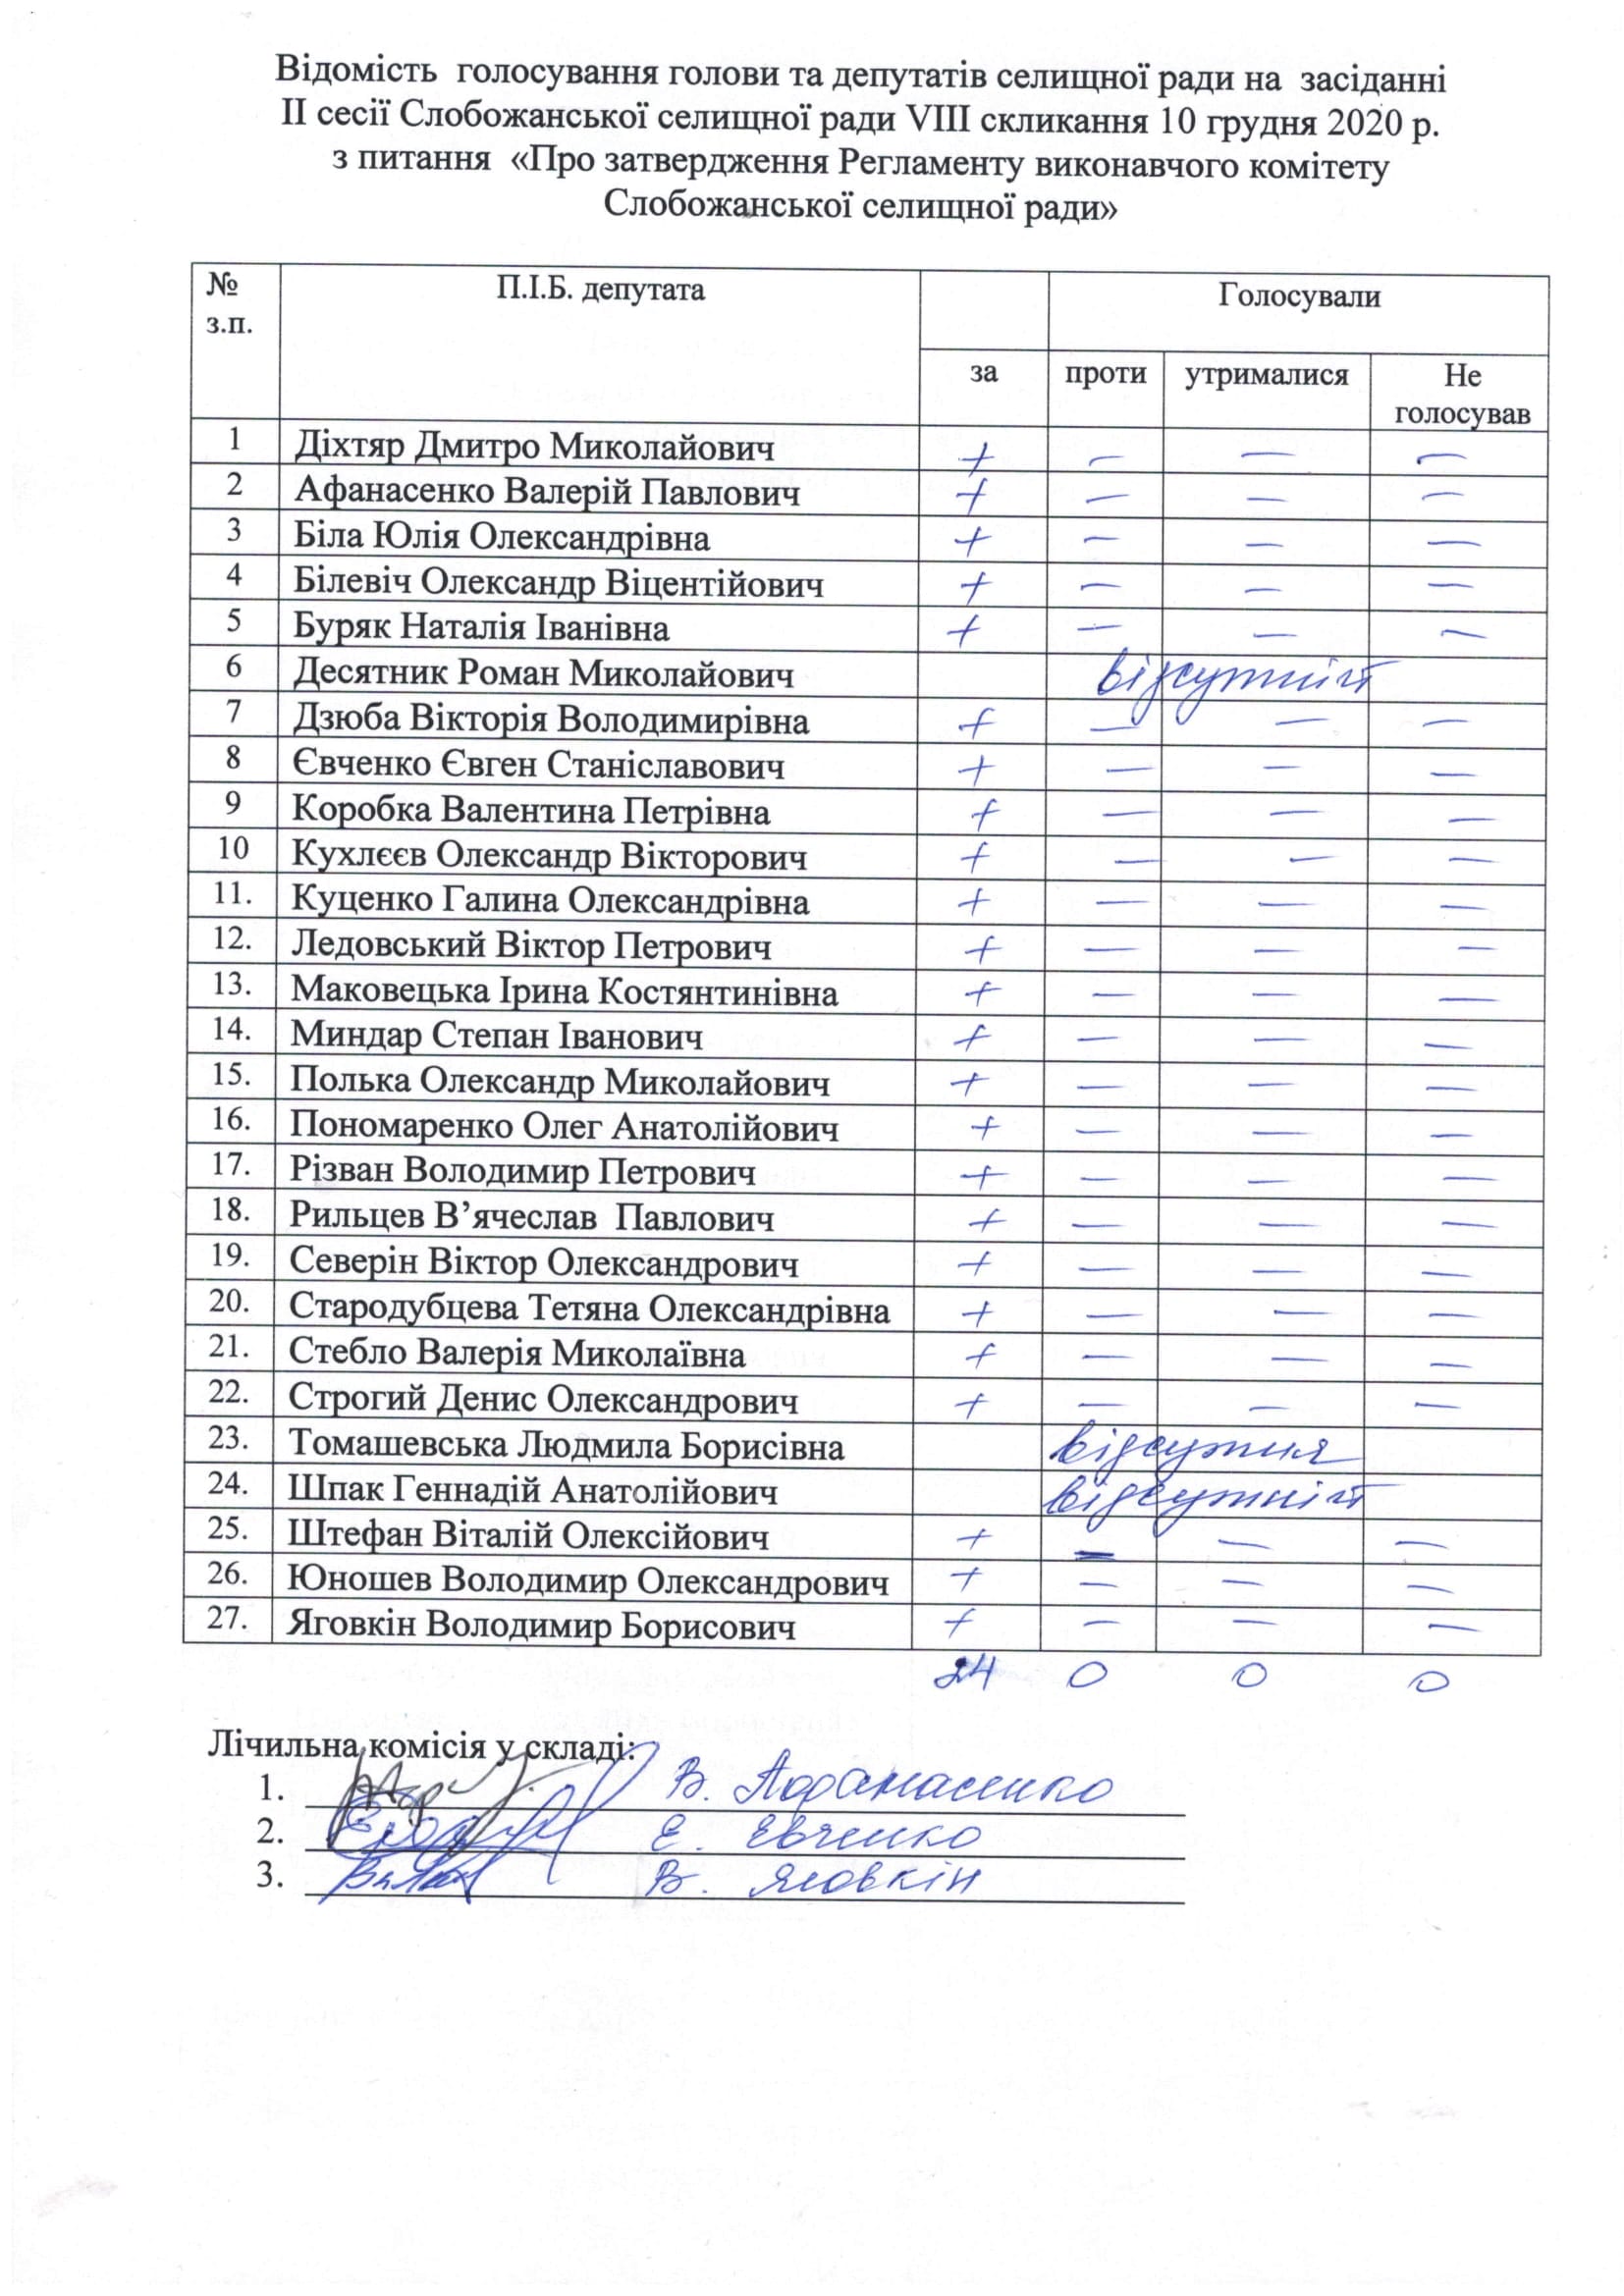 Відомість голосування голови та депутатів селищної ради на засіданні
ІІ сесії Слобожанської селищної ради VIII скликання 10 грудня 2020 р.
з питання «Про затвердження Регламенту виконавчого комітету
Слобожанської селищної ради»
№ з.п. П.І.Б. депутата Голосували
за проти утрималися Не голосував
1 Діхтяр Дмитро Миколайович + — — —
2 Афанасенко Валерій Павлович + — — —
3 Біла Юлія Олександрівна + — — —
4 Білевіч Олександр Віцентійович + — — —
5 Буряк Наталія Іванівна + — — —
6 Десятник Роман Миколайович відсутній
7 Дзюба Вікторія Володимирівна + — — —
8 Євченко Євген Станіславович + — — —
9 Коробка Валентина Петрівна + — — —
10 Кухлєєв Олександр Вікторович + — — —
11. Куценко Галина Олександрівна + — — —
12. Ледовський Віктор Петрович + — — —
13. Маковецька Ірина Костянтинівна + — — —
14. Миндар Степан Іванович + — — —
15. Полька Олександр Миколайович + — — —
16. Пономаренко Олег Анатолійович + — — —
17. Різван Володимир Петрович + — — —
18. Рильцев В’ячеслав Павлович + — — —
19. Северін Віктор Олександрович + — — —
20. Стародубцева Тетяна Олександрівна + — — —
21. Стебло Валерія Миколаївна + — — —
22. Строгий Денис Олександрович + — — —
23. Томашевська Людмила Борисівна відсутня
24. Шпак Геннадій Анатолійович відсутній
25. Штефан Віталій Олексійович + — — —
26. Юношев Володимир Олександрович + — — —
27. Яговкін Володимир Борисович + — — —
24 0 0 0
Лічильна комісія у складі:
1. В. Афанасенко
2. Є. Євченко
3. В. Яговкін